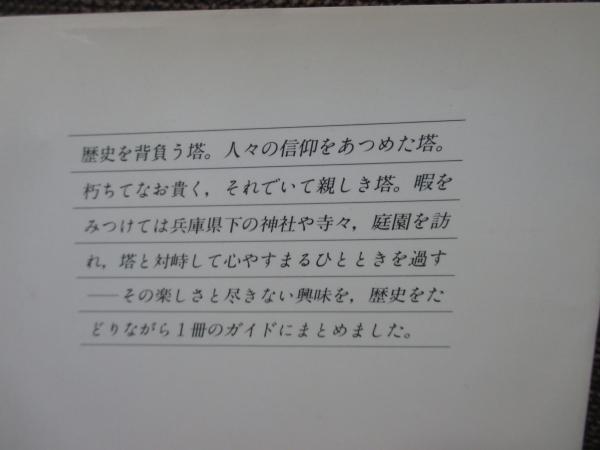 歴史を背負う塔。人々の信仰をあつめた塔。
朽ちてなお貴く，それでいて親しき塔。暇を
みつけては兵庫県下の神社や寺々，庭園を訪
れ，塔と対峙して心やすまるひとときを過す
――その楽しさと尽きない興味を，歴史をた
どりながら１冊のガイドにまとめました。